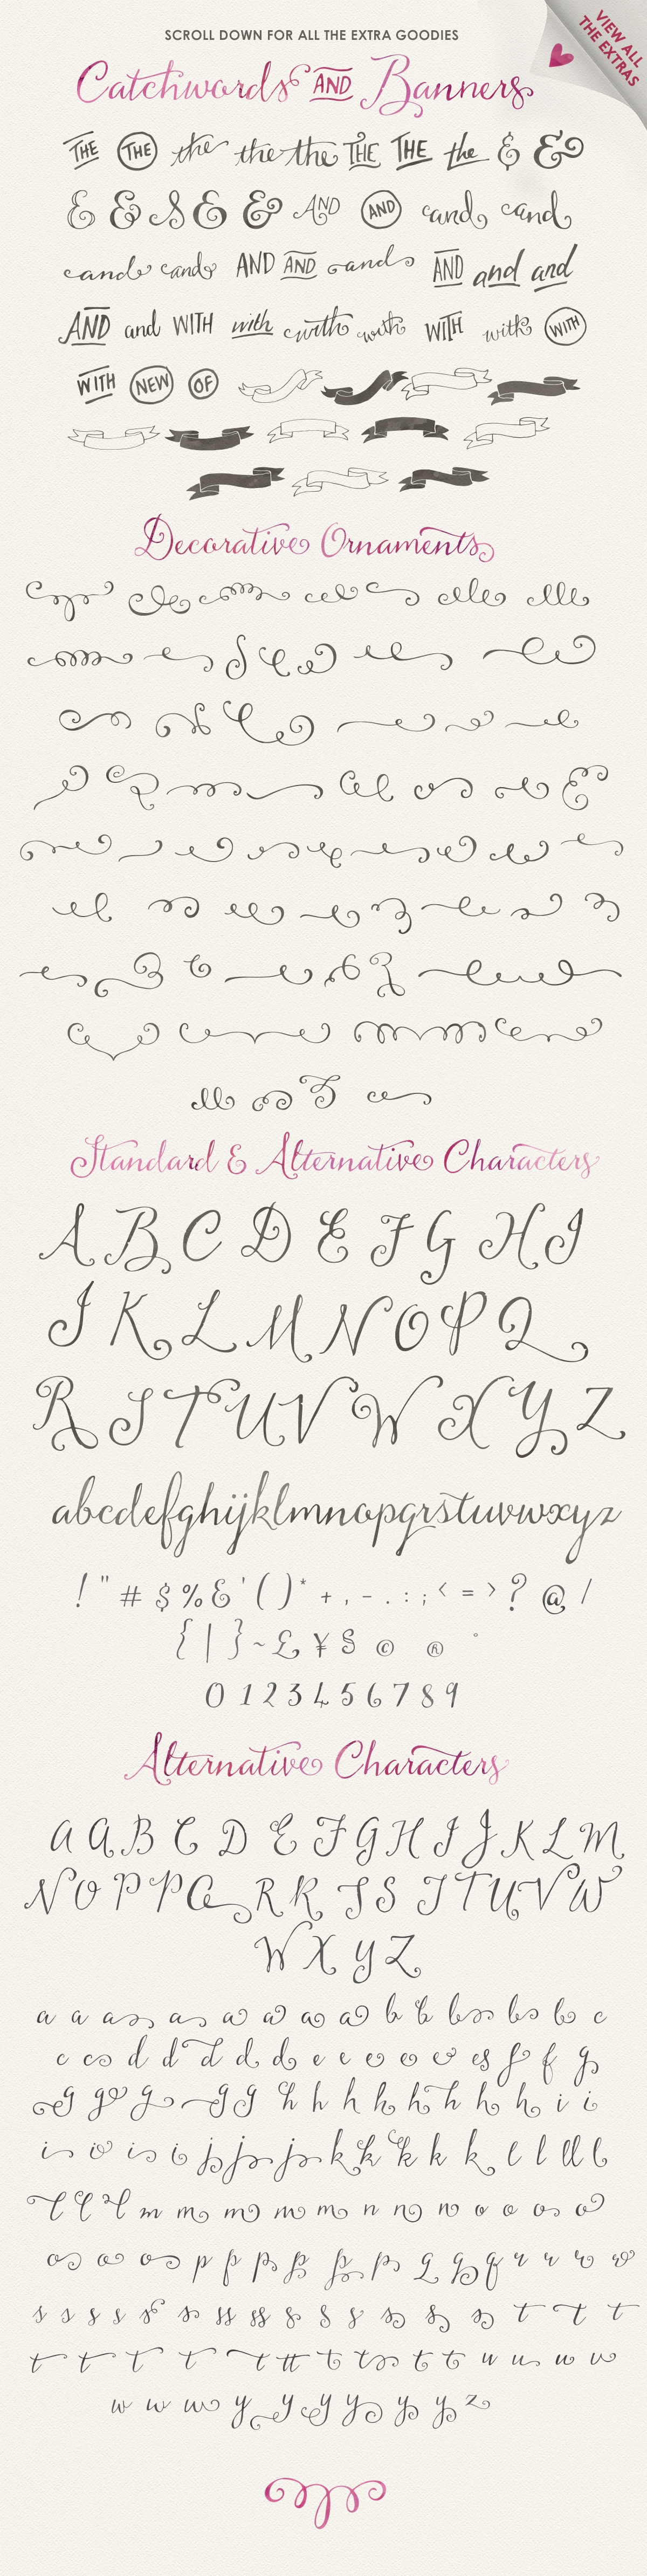 SCROLL DOWN FOR ALL THE EXTRA GOODIES
VIEW ALL
THE EXTRAS
Catchwords AND Banners
THE THE the the the THE THE the & &
& & & & & AND AND and and
and and AND AND and AND and and
AND and WITH with with with WITH with WITH
WITH NEW OF
Decorative Ornaments
Standard & Alternative Characters
A B C D E F G H I
J K L M N O P Q
R S T U V W X Y Z
abcdefghijklmnopqrstuvwxyz
! " # $ % & ' ( ) * + , - . : ; < = > ? @ /
{ | } ~ £ ¥ § © ® °
0 1 2 3 4 5 6 7 8 9
Alternative Characters
A A B C D E F G H I J K L M
N O P P Q R R S S T T U V W
W X Y Z
a a a a a a a a b b b b b c
c c d d d d d e e e e e es f f g
g g g g g h h h h h h h i i
i i i i j j j k k k k k l l ll l
l l l m m m m m n n n o o o o
o o o p p p p p p q q q r r r r
s s s s s s ss ss s s s s s s t t t
t t t t t tt t t t t u u u v
w w w y y y y y y z